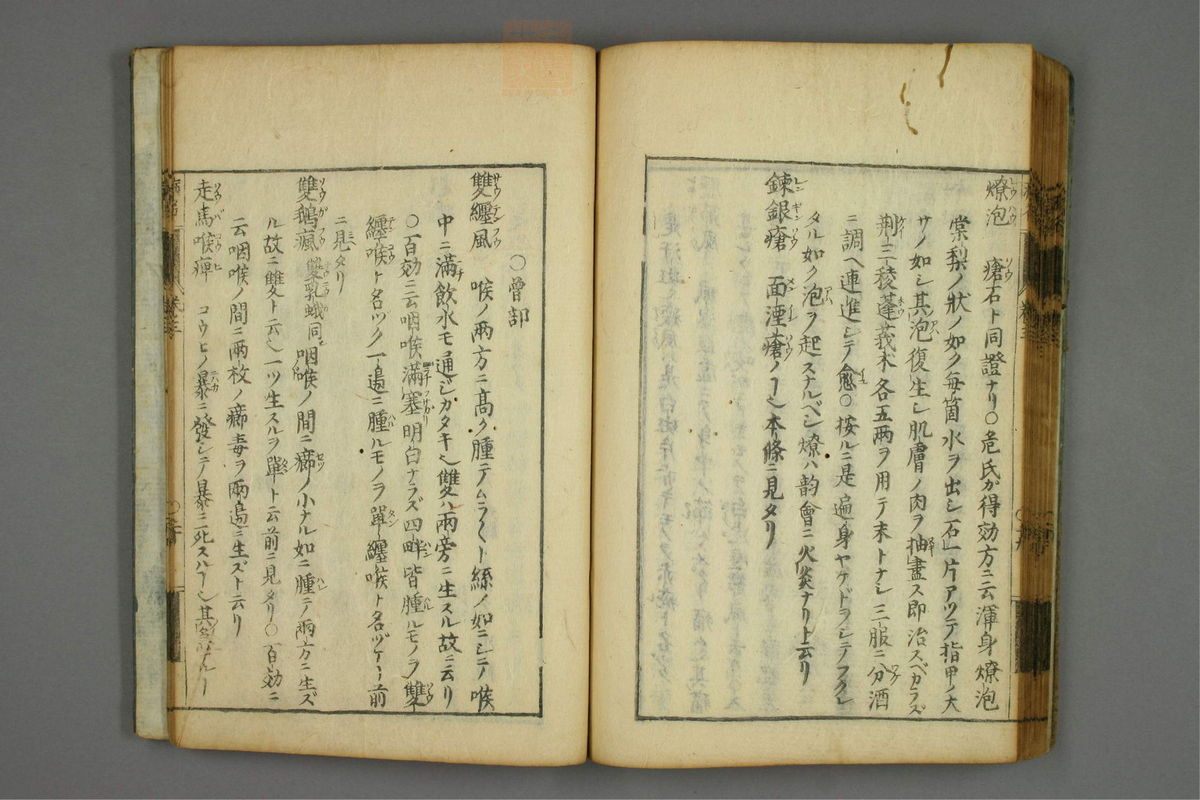 燎泡 瘡石ト同證ナリ〇危氏ガ得効方ニ云渾身燎泡
棠梨ノ狀ノ如ク毎箇水ヲ出シ石一片アツテ指甲ノ大
サノ如シ其泡復生シ肌膚ノ肉ヲ抽盡ス即治スベカラズ
荆三稜蓬莪朮各五兩ヲ用テ末トナシ三服ニ分酒
ニ調ヘ連進シテ愈〇按ルニ是遍身ヤケドヲシテフクレ
タル如ク泡ヲ起スナルベシ燎ハ韵會ニ火炙ナリト云リ
鍊銀瘡 面湮瘡ノ ̄也本條ニ見タリ
〇曾部
雙纏風 喉ノ兩方ニ高ク腫テムラ〱ト絲ノ如ニシテ喉
中ニ滿飲水モ通ジガタキ也雙ハ兩旁ニ生スル故ニ云リ
〇百効ニ云咽喉滿塞明白ナラズ四畔皆腫ルモノヲ雙
纏喉ト名ヅク一邉ニ腫ルモノヲ單纏喉ト名ヅケ 前
ニ見タリ
雙鵝瘋 雙乳蛾同 咽喉ノ間ニ癤ノ小ナル如ニ腫テ兩方ニ生ズ
ル故ニ雙ト云也一ツ生スルヲ單ト云前ニ見タリ〇百効ニ
云咽喉ノ間ニ兩枚ノ癤毒ヲ兩邉ニ生ズト云リ
走馬喉痺 コウヒノ暴ニ發シテ暴ニ死スル 也其